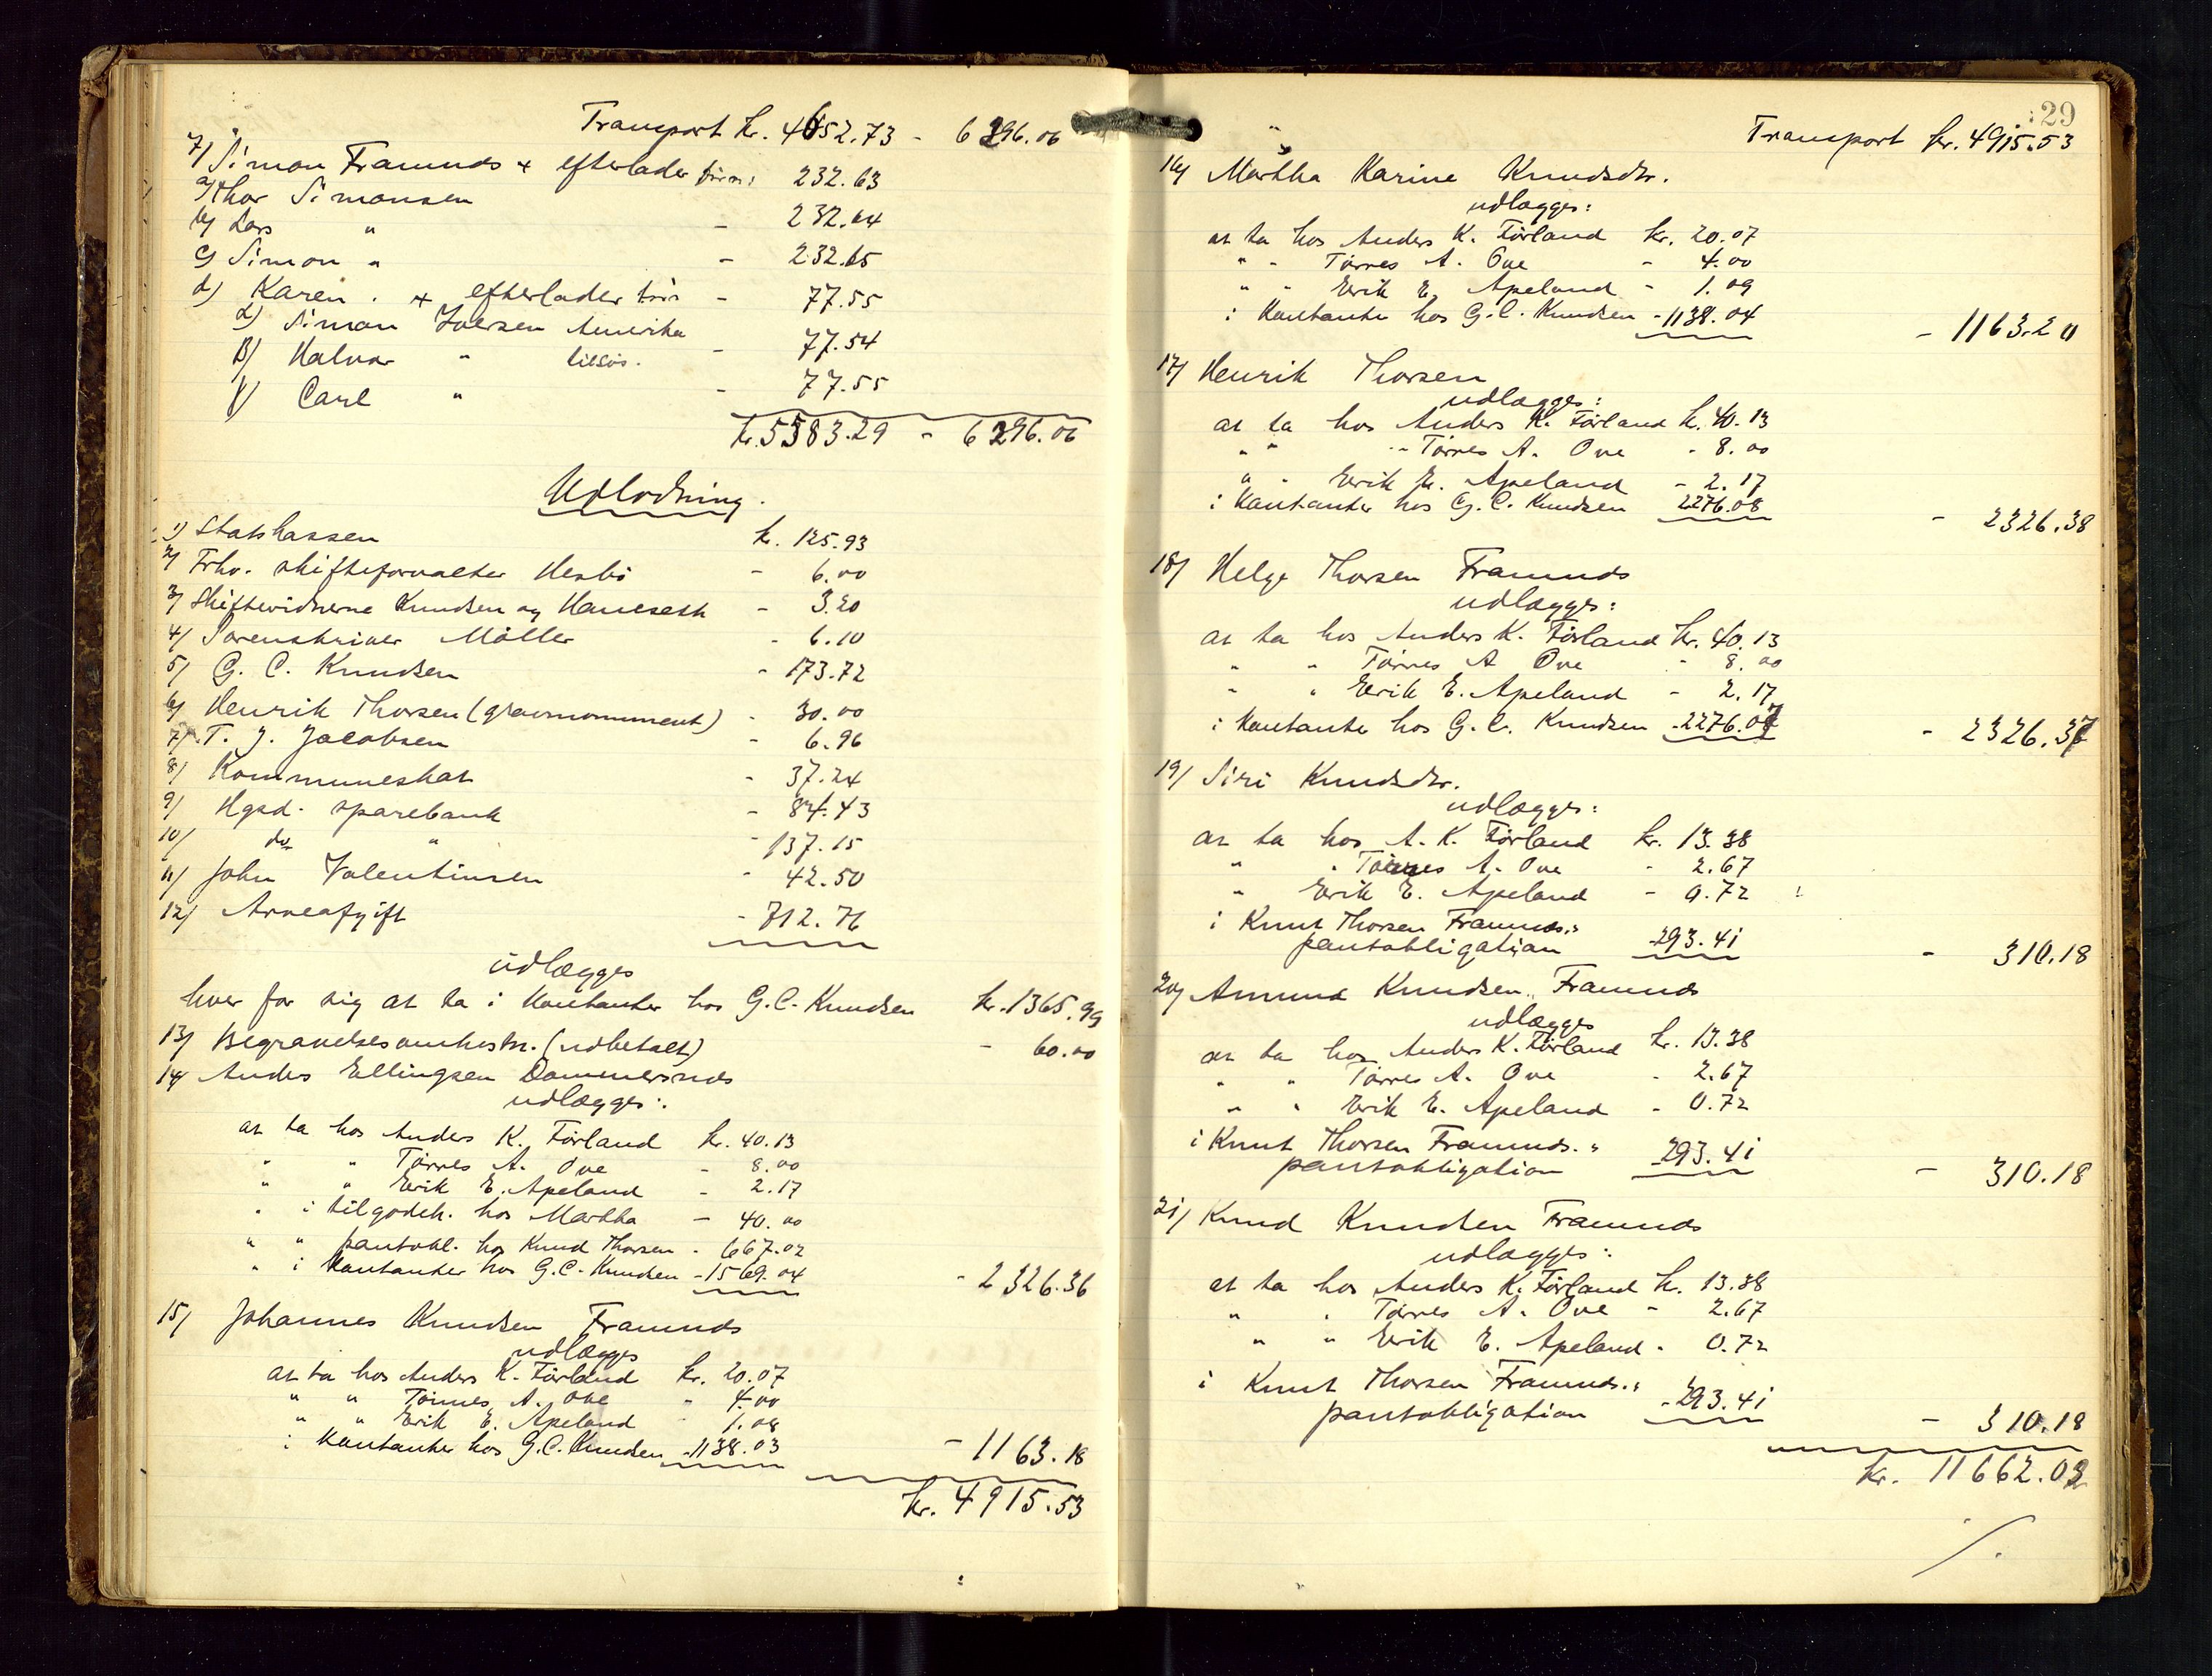 Transport kr. 4652.73 - 6296.06
7) Simon Framnds + efterlader børn:
a) Thor Simonsen 232.63
b) Lars " - 232.64
c) Simon " - 232.65
d) Karen . + efterlader børn - 77.55
α) Simon Iversen Amerika
β) Halvor " tilsøs. - 77.54
γ) Carl " - 77.55
kr. 5583.29 - 6296.06
Udlodning.
1) Statskassen kr. 125.93
2) Frhv. skifteforvalter Hesbö - 6.00
3) Skiftevidnerne Knudsen og Haueseth - 3.20
4) Sorenskriver Möller - 6.10
5) G. C. Knudsen - 173.72
6) Henrik Thorsen (gravmonument) - 30.00
7) T. J. Jacobsen - 6.96
8) Kommuneskat - 37.24
9) Hgsd. sparebank - 84.43
10) do " - 137.15
11) John Valentinsen - 42.50
12) Arveafgift - 712.76
udlægges
hver for sig at ta i Kontanter hos G.C. Knudsen kr. 1365.99
13) Begravelsesomkostn. (udbetalt) - 60.00
14) Anders Ellingsen Dommersnes
udlægges:
at ta hos Anders K. Förland kr. 40.13
" " Törres A. Ove - 8.00
" " Eerik E. Apeland - 2.17
" i tilgodeh. hos Martha - 40.00
" " pantobl. hos Knud Thorsen - 667.02
" i Kontanter hos G.C. Knudsen - 1569.04
- 2326.36
15) Johannes Knudsen Framnds
udlægges
at ta hos Anders K. Förland kr. 20.07
" " Tönnes A. Ove " 4.00
" " Eerik E. Apeland " 1.08
i Kontanter hos G.C. Knudsen - 1138.03
- 1163.18
kr. 4915.53
29
Transport kr. 4915.53
16) Martha Karine Knudsdtr.
udlægges:
at ta hos Anders K. Förland kr. 20.07
" " Törres A. Ove - 4.00
" " Eerik E. Apeland - 1.09
i Kontanter hos G.C. Knudsen - 1138.04
- 1163.20
17) Henrik Thorsen
udlægges:
at ta hos Anders K. Förland kr. 40.13
" " " Törres A. Ove - 8.00
" " Eerik E. Apeland - 2.17
i Kontanter hos G.C. Knudsen 2276.08
- 2326.38
18) Helge Thorsen Framnds
udlægges:
at ta hos Anders K. Förland kr. 40.13
" " Törres A Ove - 8.00
" " Eerik E. Apeland - 2.17
i Kontanter hos G.C. Knudsen - 2276.07
- 2326.37
19) Siri Knudsdtr.
udlægges:
at ta hos A. K. Förland kr. 13.38
" " Törres A. Ove - 2.67
" Eerik E. Apeland - 0.72
i Knut Thorsen Framnds."
pantobligation - 293.41
- 310.18
20) Amund Knudsen Framnds
udlægges
at ta hos Anders K. Förland kr. 13.38
" " Törres A. Ove - 2.67
" " Eerik E. Apeland - 0.72
i Knut Thorsen Framnds."
pantobligation - 293.41
- 310.18
21) Knud Knudsen Framnds
udlægges:
at ta hos Anders K. Förland kr. 13.38
" " Törres A. Ove - 2.67
" " Eerik E. Apeland - 0.72
i Knut Thorsen Framnds."
pantobligation - 293.41
- 310.18
kr. 11662.02